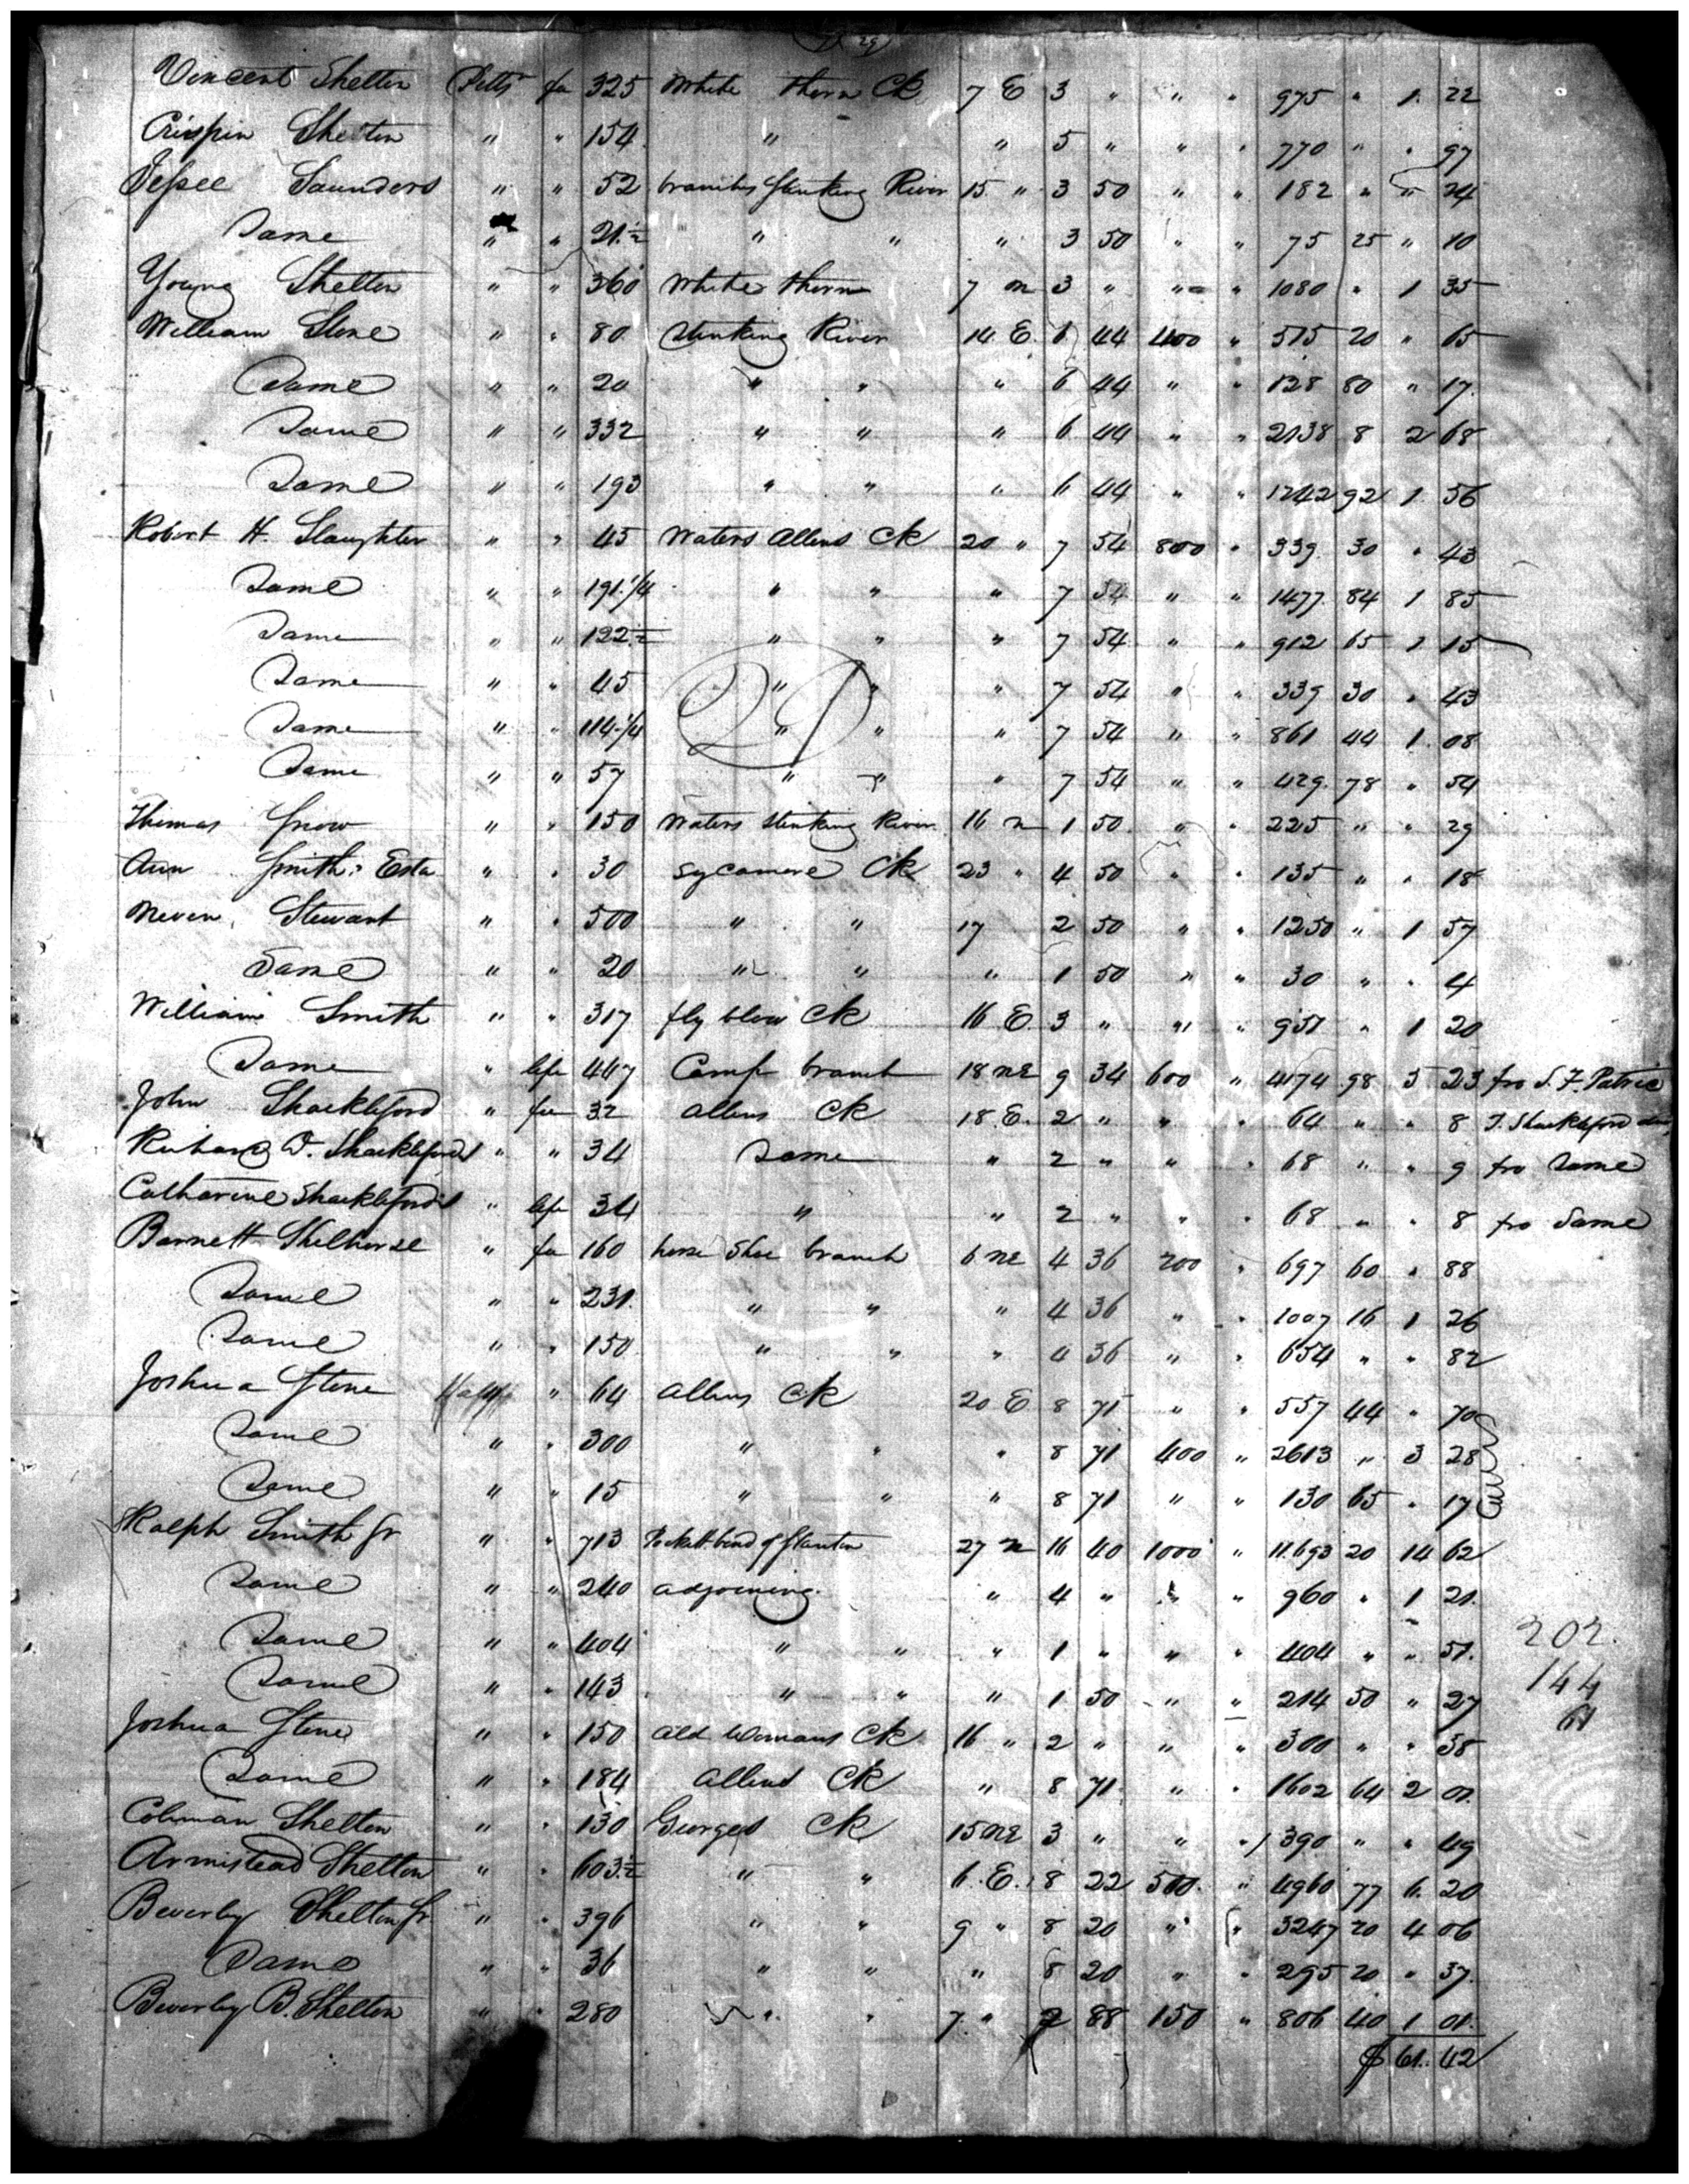 29
Vincent Shelton Pitts fee 325 White thorn Ck 7 E 3 " " " 975 " 1. 22
Crispin Shelton " " 154 " " 5 " " " 770 " " 97
Jessee Saunders " " 52 branches Stinking River 15 " 3 50 " " 182 " " 24
Same " " 21 1/2 " " " 3 50 " " 75 25 " 10
Young Shelton " " 360 White thorn 7 N 3 " " " 1080 " 1 35
William Stone " " 80 Stinking River 14 E. 6 44 400 " 515 20 " 65
Same " " 20 " " " 6 44 " " 128 80 " 17.
Same " " 332 " " " 6 44 " " 2138 8 2 68
Same " " 193 " " " 6 44 " " 1242 92 1. 56
Robert H. Slaughter " " 45 Waters Allens Ck 20 " 7 54 800 " 339. 30 " 43
Same " " 191 1/4 " " " 7 54 " " 1477. 84 1 85
Same " " 122 1/2 " " " 7 54 " " 912 65 1 15
Same " " 45 " " " 7 54 " " 339 30 " 43
Same " " 114 1/4 " " " 7 54 " " 861 44 1. 08
Same " " 57 " " " 7 54 " " 429. 78 " 54
29
Thomas Snow " " 150 Waters Stinking River 16 N 1 50 " " 225 " " 29
Ann Smiths Esta " " 30 Sycamore Ck 23 " 4 50 " " 135 " " 18
Stewart " " 500 " " 17 2 50 " " 1250 " 1 57
Same " " 20 " " " 1 50 " " 30 " " 4
William Smith " " 317 fly blow Ck 16 E 3 " " " 951 " 1 20
Same " life 447 Camp branch 18 NE 9 34 600 " 4174 98 5 23 fro S. F. Patric
John Shackleford " fee 32 Allens Ck 18 E. 2 " " " 64 " " 8 J. Shackleford
Richard D. Shackleford " " 34 Same " 2 " " " 68 " " 9 fro Same
Catharine Shackleford " life 34 " " 2 " " " 68 " " 8 fro Same
Barnett Shelhorse " fee 160 horse Shoe branch 6 NE 4 36 200 " 697 60 " 88
Same " " 231. " " " 4 36 " " 1007 16 1 26
Same " " 150 " " " 4 36 " " 654 " " 82
Joshua Stone Halifx " 64 Allens Ck 20 E 8 71 " " 557 44 " 70
Same " " 300 " " " 8 71 400 " 2613 " 3 28
Same " " 15 " " " 8 71 " " 130 65 " 17
Ralph Smith Jr " " 713 Pockett bend of Stanton 27 N 16 40 1000 " 11.693 20 14 62
Same " " 240 adjoining. " 4 " " " 960 " 1 21.
Same " " 404 " " " 1 " " " 404 " " 51.
202.
Same " " 143 " " " 1 50 " " 214 50 " 27
144
Joshua Stone " " 150 Old Womans Ck 16 " 2 " " " 300 " " 38
Same " " 184 Allens Ck " 8 71 " " 1602 64 2 01.
Coleman Shelton " " 130 Georges Ck 15 NE 3 " " " 390 " " 49
Armistead Shelton " " 603 1/2 " " 6. E. 8 22 500. " 4960 77 6. 20
Beverly Shelton Jr " " 396 " " 9 " 8 20 " " 3247 20 4 06
Same " " 36 " " " 8 20 " " 295 20 " 37.
Beverly B. Shelton " " 280 " " 7. " 2 88 150 " 806 40 1 01.
$ 61. 42